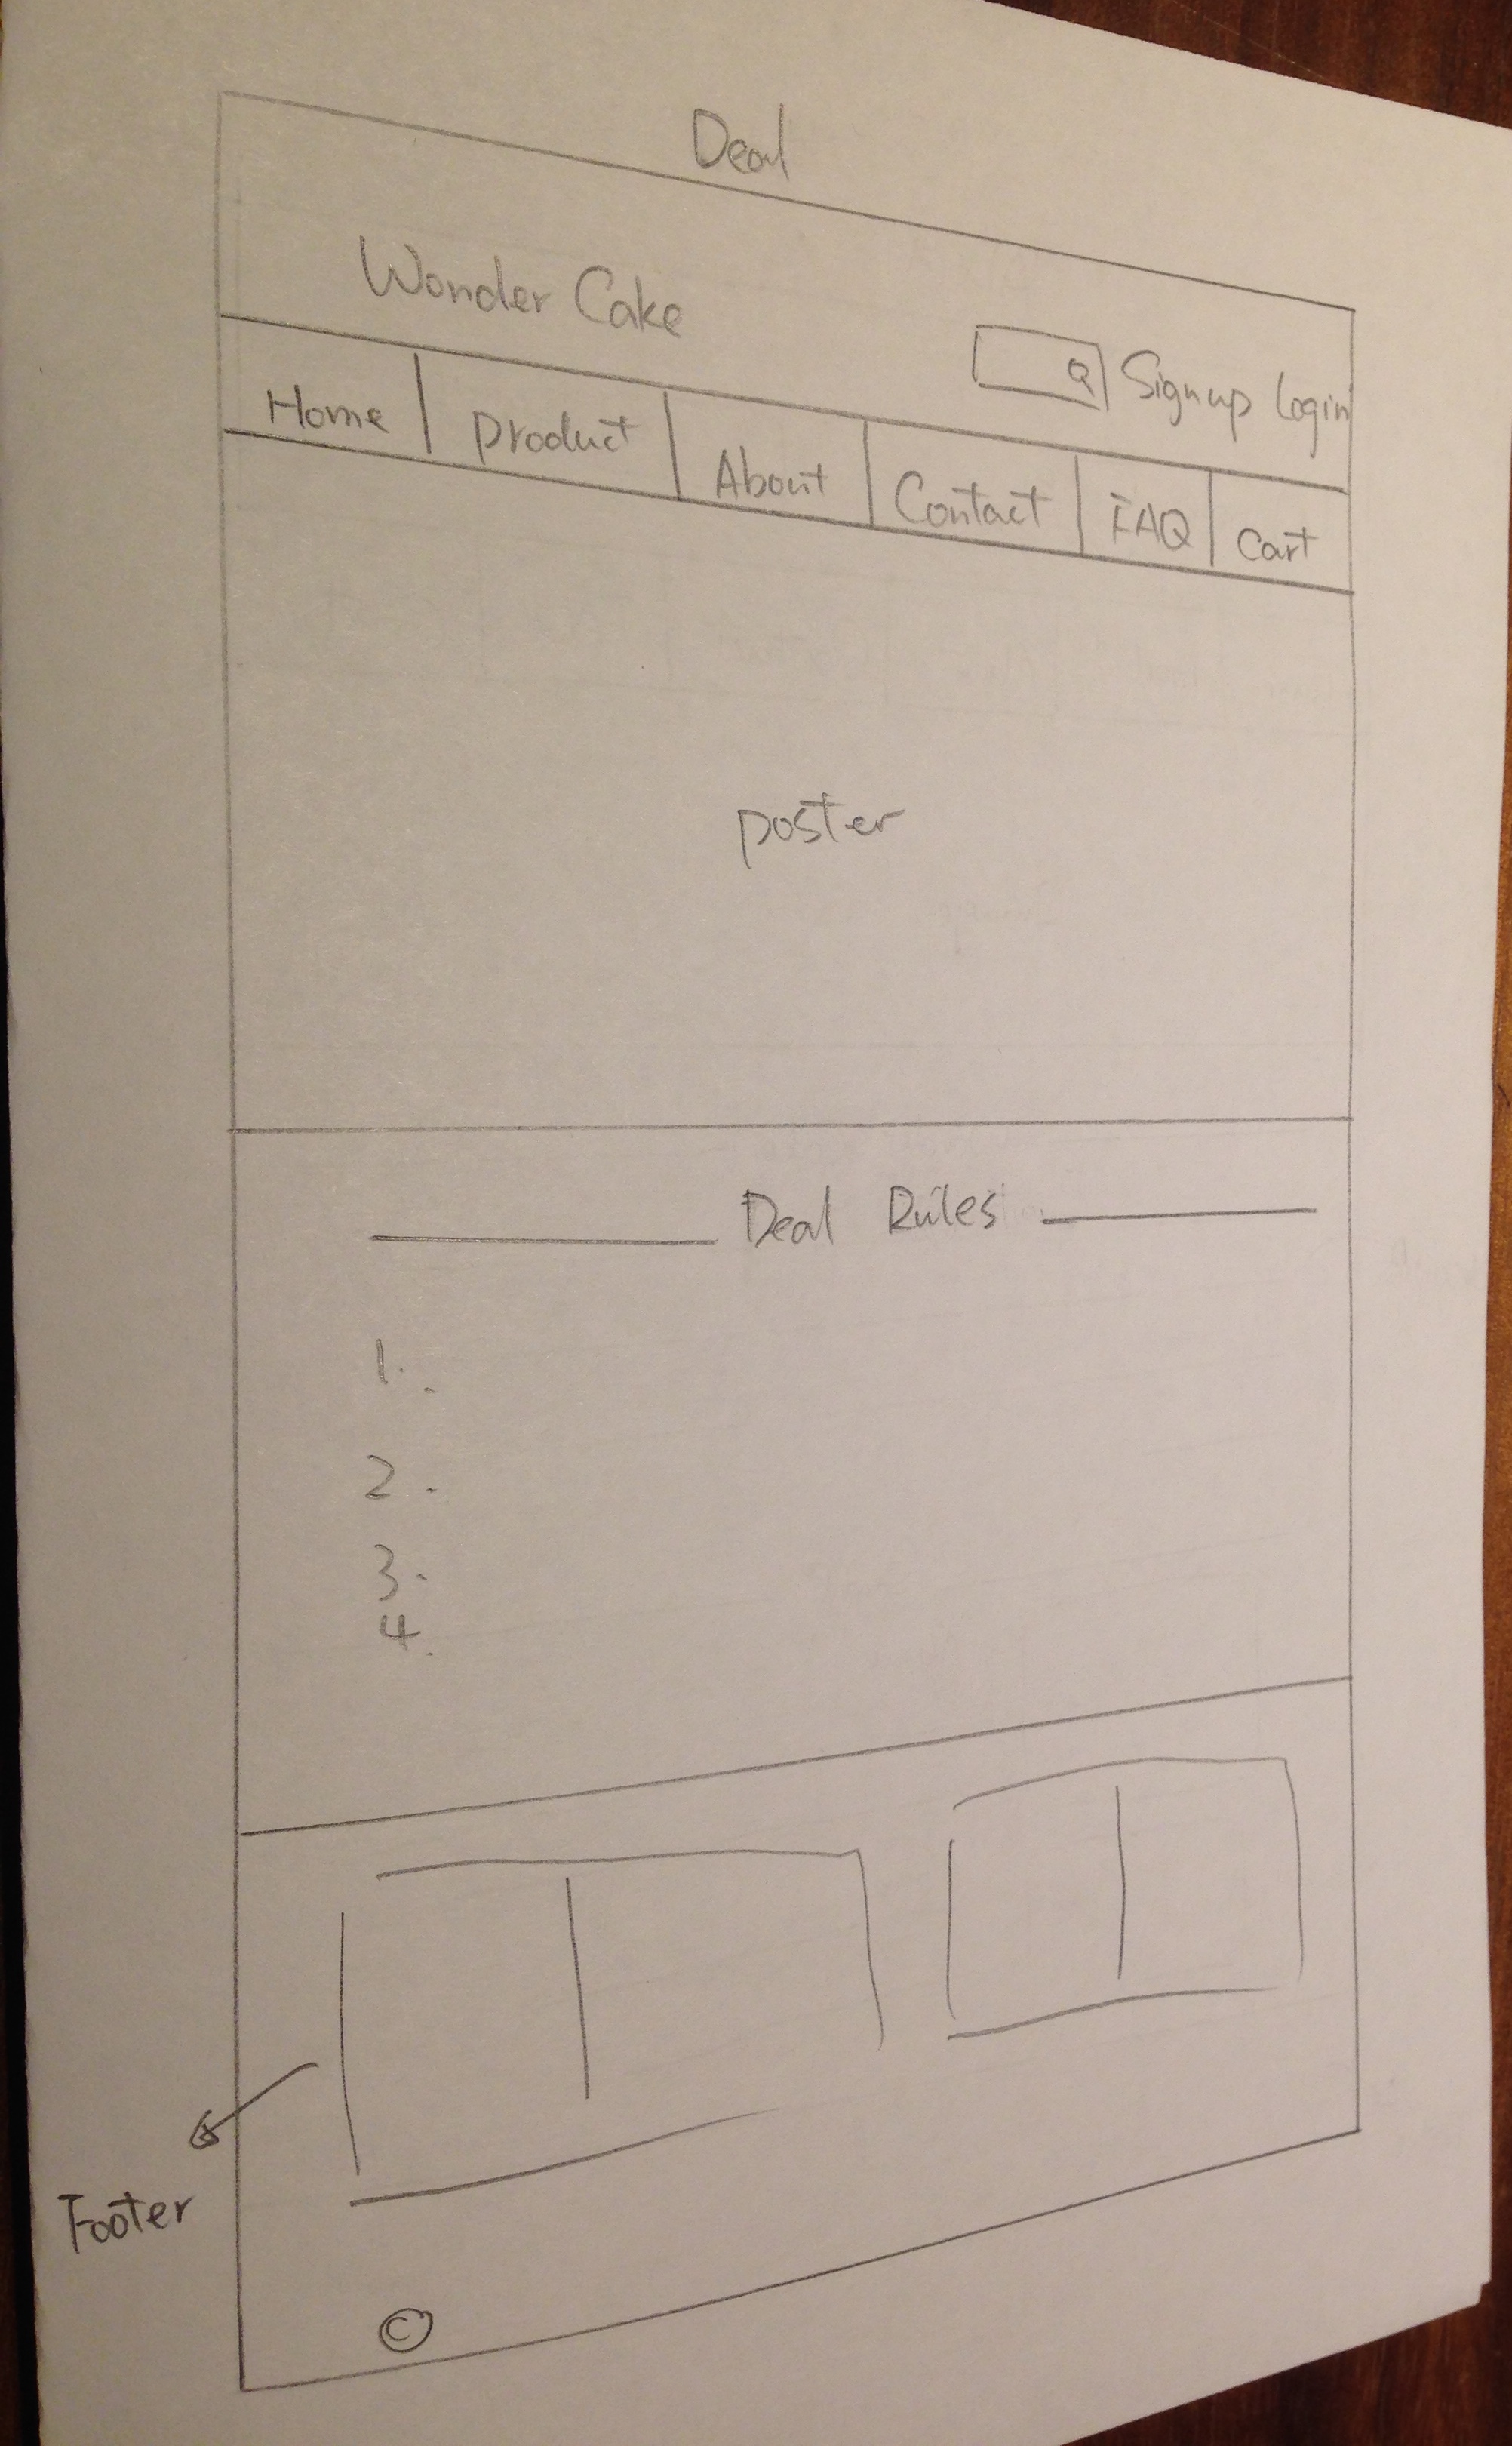 Deal
Wonder Cake
Q Signup Login
Home Product About Contact FAQ Cart
poster
Deal Rules
1.
2.
3.
4.
Footer
©